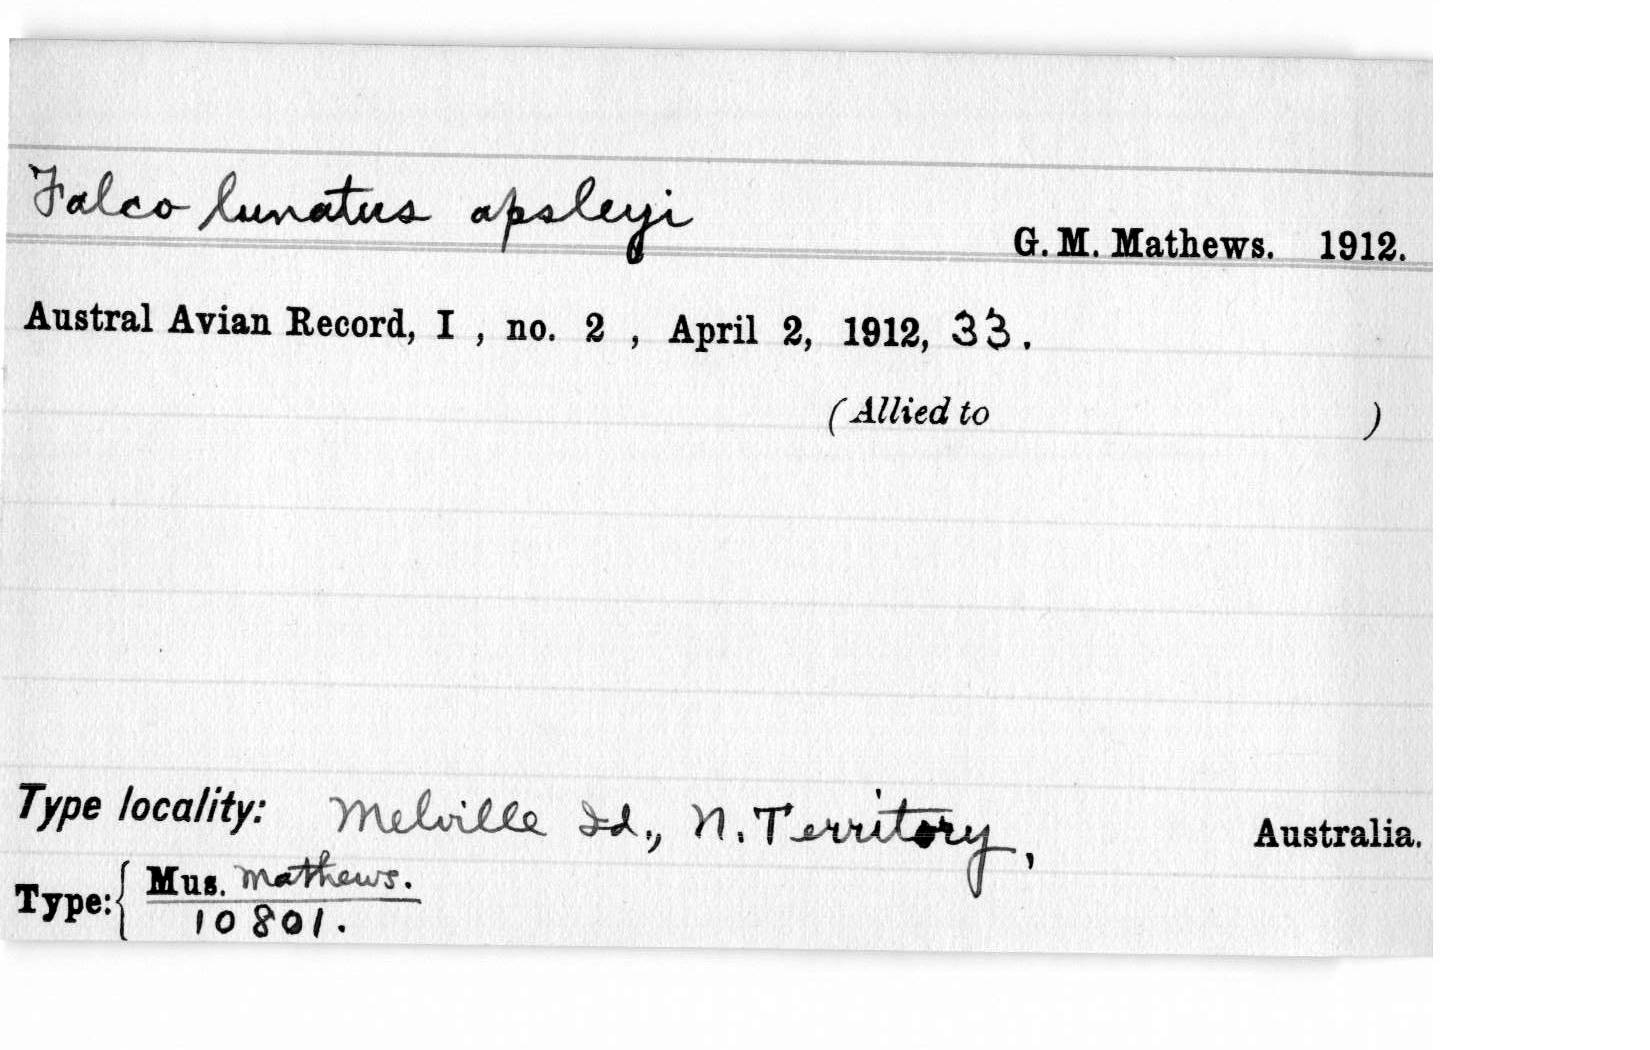 Falco lunatus apsleyi
G. M. Mathews. 1912.
Austral Avian Record, I , no. 2 , April 2, 1912, 33.
(Allied to )
Type locality: Melville Id., N. Territory, Australia.
Type: { Mus. Mathews.
10801.